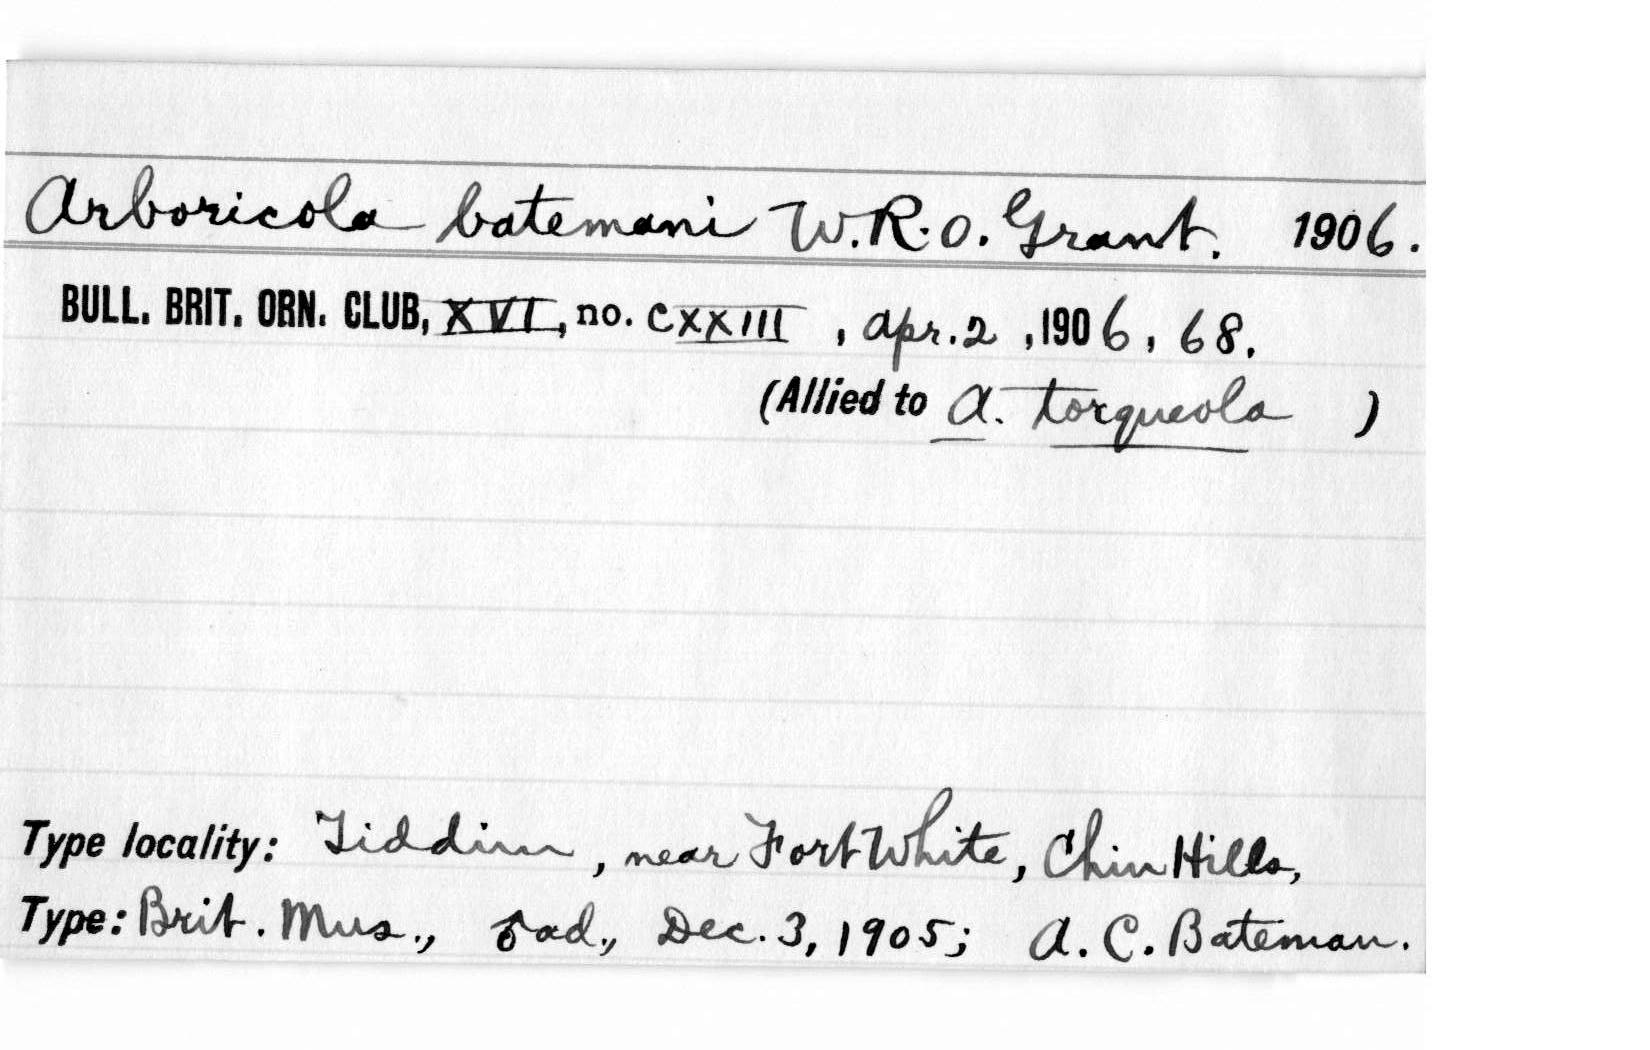 Arboricola batemani W.R.O. Grant. 1906.
BULL. BRIT. ORN. CLUB, XVI, no. CXXIII, Apr. 2, 1906, 68.
(Allied to A. torqueola )
Type locality: Tiddim, near Fort White, Chin Hills,
Type: Brit. Mus., ♂ ad., Dec. 3, 1905; A. C. Bateman.